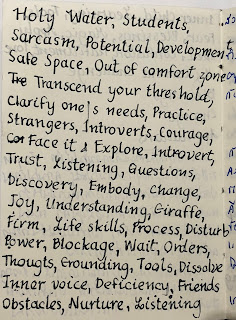 Holy Water, Students,
Sarcasm, Potential, Developmen
Safe Space, Out of comfort zone
The Transcend your threshold,
Clarify one's needs, Practice,
Strangers, Introverts, Courage,
Face it & Explore, Introvert,
Trust, Listening, Questions,
Discovery, Embody, Change,
Joy, Understanding, Giraffe,
Firm, Life skills, Process, Disturb
Power, Blockage, Wait, Orders,
Thougts, Grounding, Tools, Dissolve
Inner voice, Deficiency, Friends
Obstacles, Nurture, Listening